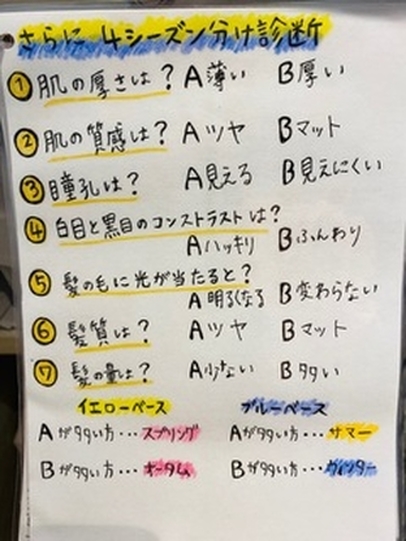 さらに 4シーズン分け診断
① 肌の厚さは? A 薄い B 厚い
② 肌の質感は? A ツヤ B マット
③ 瞳孔は? A 見える B 見えにくい
④ 白目と黒目のコンストラストは?
A ハッキリ B ふんわり
⑤ 髪の毛に光が当たると?
A 明るくなる B 変わらない
⑥ 髪質は? A ツヤ B マット
⑦ 髪の量は? A 少ない B 多い
イエローベース ブルーベース
Aが多い方…スプリング Aが多い方…サマー
Bが多い方…オータム Bが多い方…ウィンター